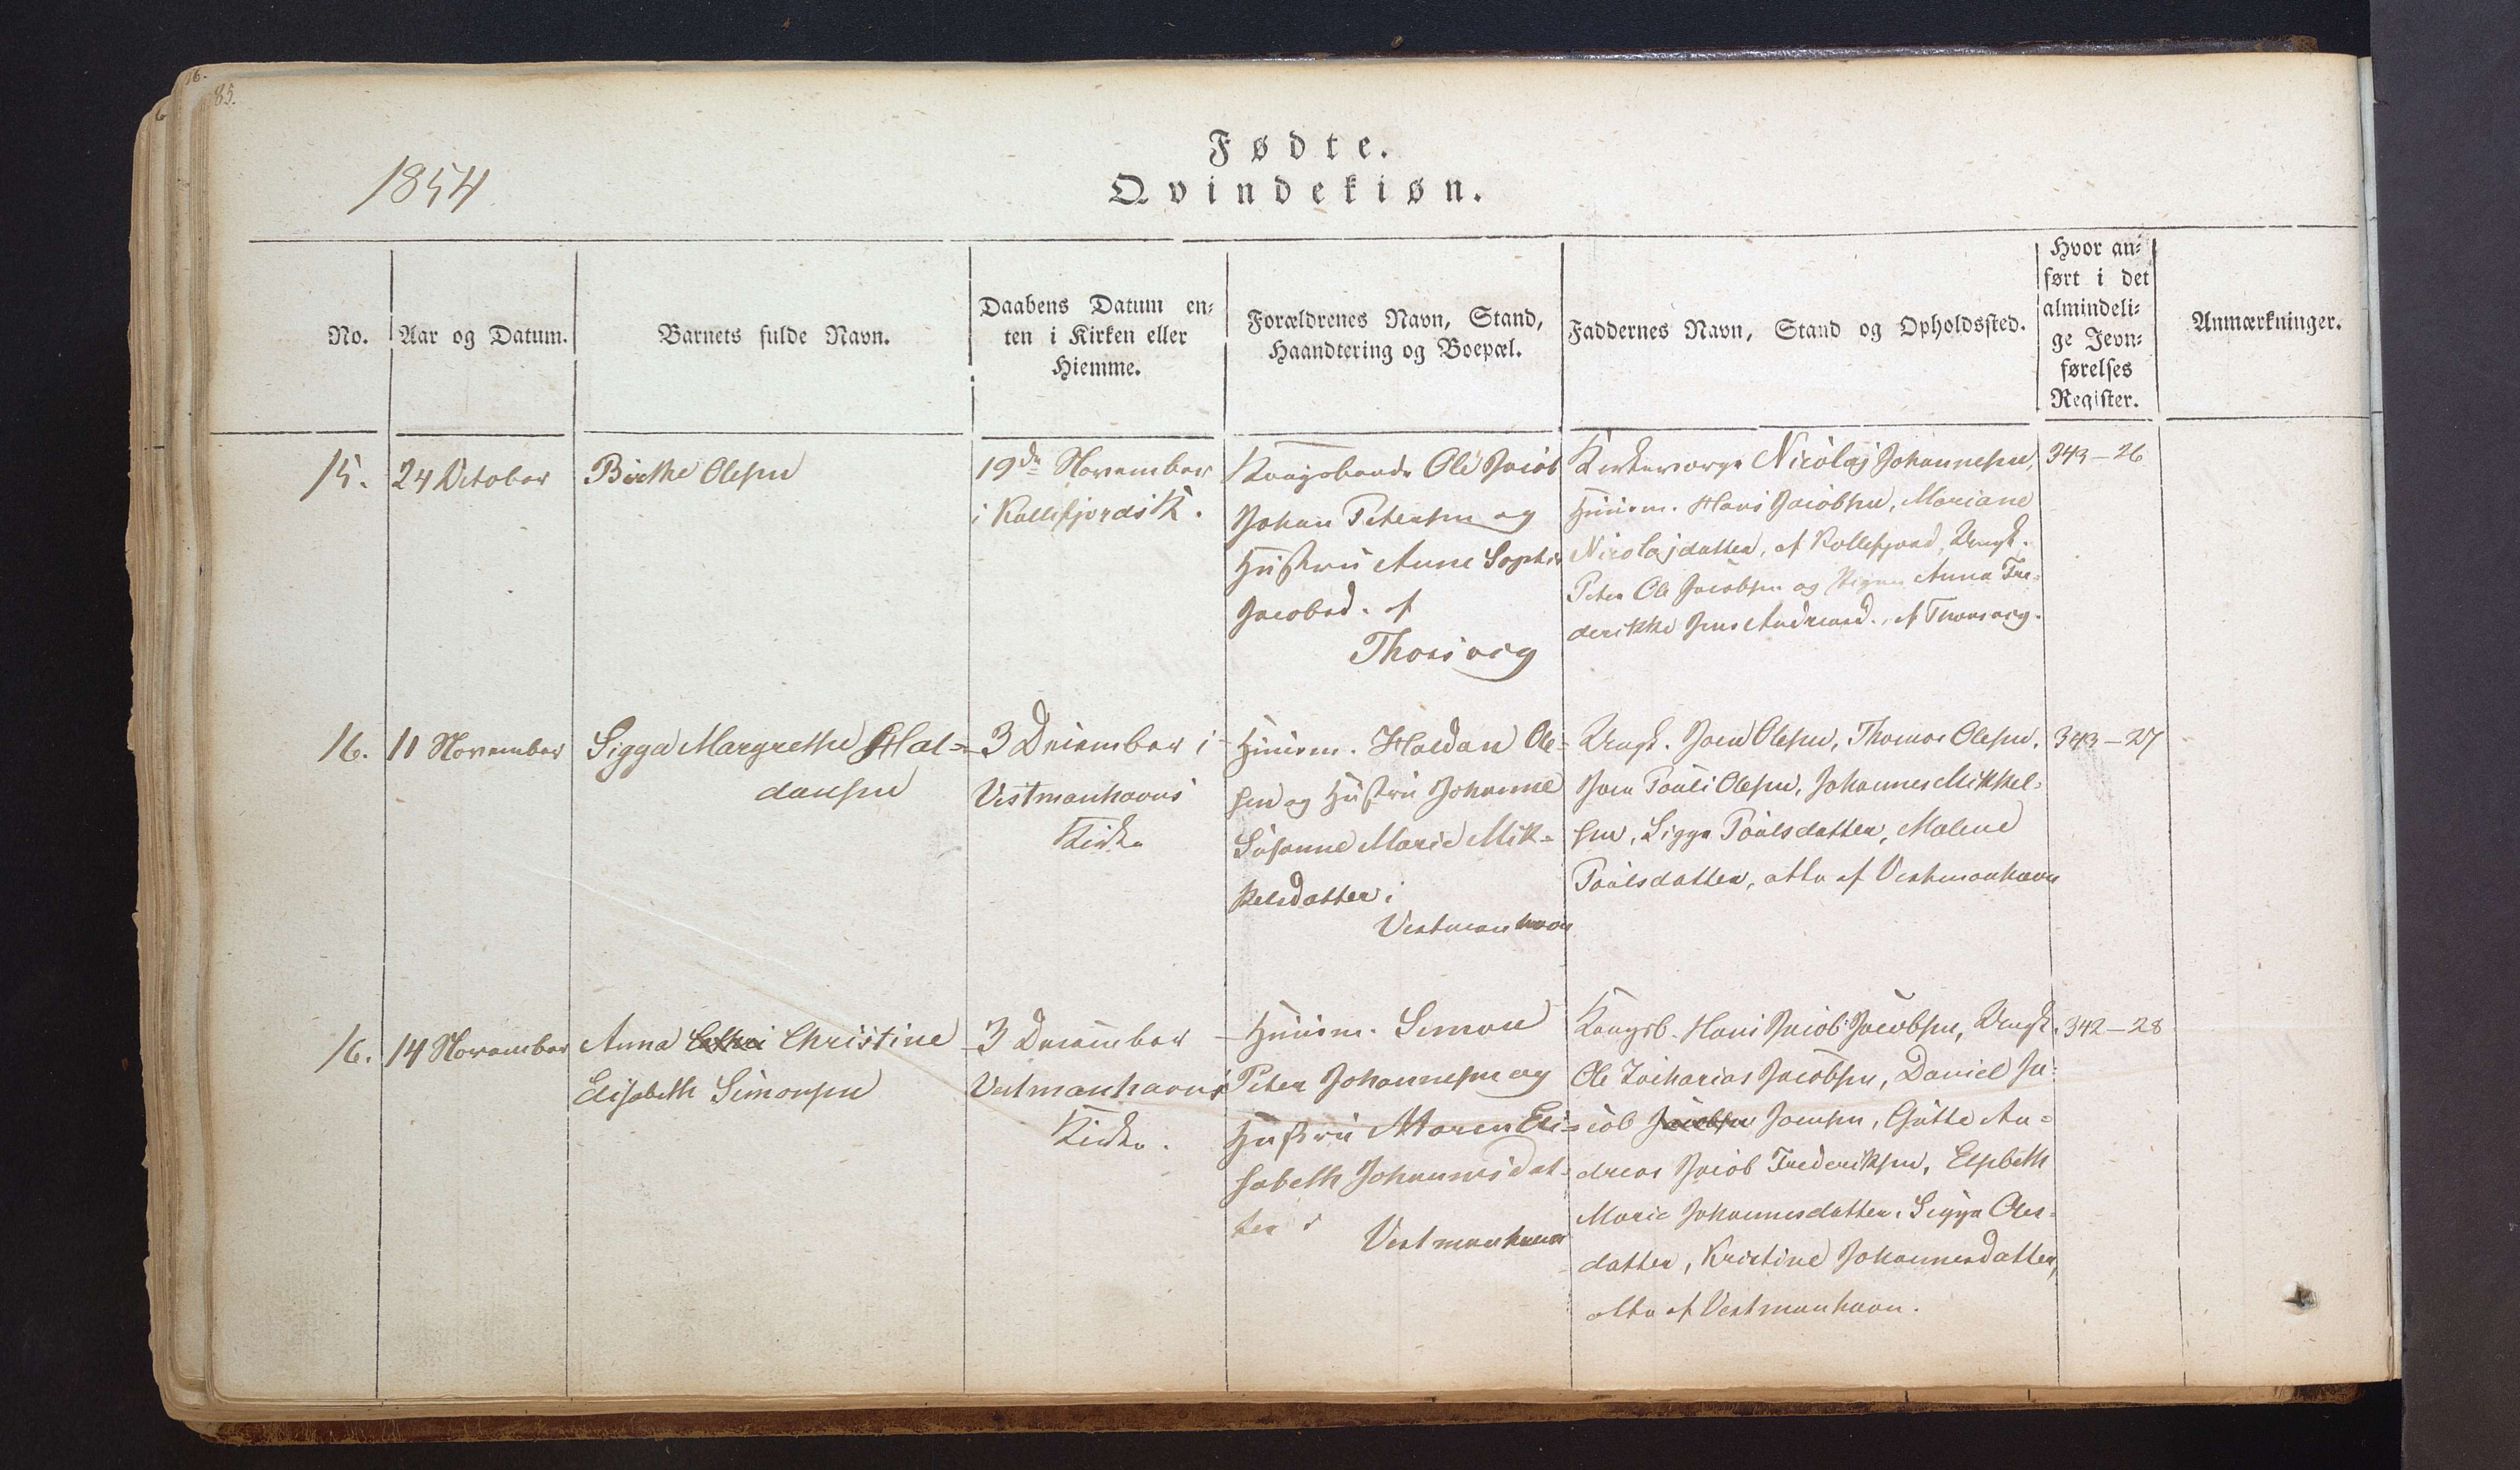 85.
1854
Fødte.
Qvindekiøn.
No.
Aar og Datum.
Barnets fulde Navn.
Daabens Datum en-
ten i Kirken eller
Hiemme.
Forældrenes Navn, Stand,
Haandtering og Boepæl.
Faddernes Navn, Stand og Opholdssted.
Hvor an-
ført i det
almindeli-
ge Jevn-
førelses
Register.
Anmærkninger.
15.
24 October
Birthe Olesen
19de November
i Kollefjords K.
Kongsbonde Ole Jacob
Johan Petersen og
Hustru Anne Sophie
Jacobsd. af
Thorsvig
Kirkeværge Nicolaj Johannesen,
Huusm. Hans Jacobsen, Mariane
Nicolajdatter, af Kollefjord, Ungk.
Peter Ole Jacobsen og Pigen Anna Fre-
derikke Jens Andreasd. af Thorsvig.
343-26
16.
11 November
Sigga Margrethe Hal-
dansen
3 December i
Vestmanhavns
Kirke
Huusm. Haldan Ole-
sen og Hustru Johanne
Susanne Marie Mik-
kelsdatter i
Vestmanhavn
Ungk. Joen Olesen, Thomas Olesen,
Joen Pouli Olesen, Johannes Mikkel-
sen, Sigga Poulsdatter, Malene
Poulsdatter, alle af Vestmanhavn
343-27
16.
14 November
Anna Christine
Elisabeth Simonsen
3 December
Vestmanhavns
Kirke.
Huusm. Simon
Peter Johannesen og
Hustru Maren Eli-
sabeth Johannesdat-
ter i
Vestmanhavn
Kongsb. Hans Jacob Jacobsen, Ungk.
Ole Zacharias Jacobsen, Daniel Ja-
cob Jacobsen Joensen, Gutte An-
dreas Jacob Frederiksen, Elsbeth
Marie Johannesdatter, Sigga Oles-
datter, Kristine Johannesdatter,
alle af Vestmanhavn.
342-28